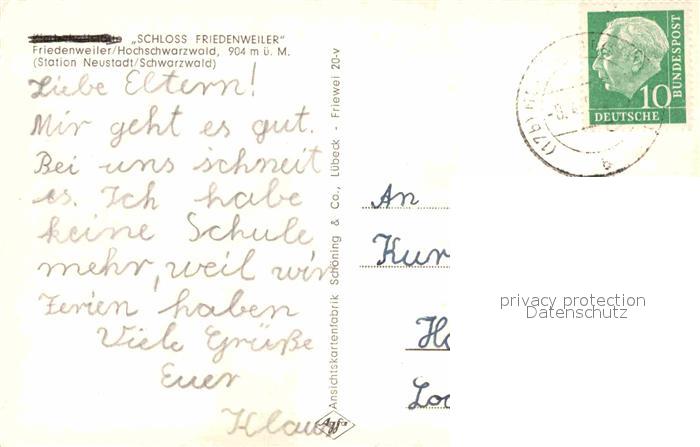 „SCHLOSS FRIEDENWEILER"
Friedenweiler/Hochschwarzwald, 904 m ü. M.
(Station Neustadt/Schwarzwald)
Liebe Eltern!
Mir geht es gut.
Bei uns schneit
es. Ich habe
keine Schule
mehr, weil wir
Ferien haben
Viele Grüße
Euer
Klaus
Ansichtskartenfabrik Schöning & Co., Lübeck · Friewei 20-v
Agfa
10
DEUTSCHE
BUNDESPOST
(17b)
An
Kur
privacy protection
Datenschutz